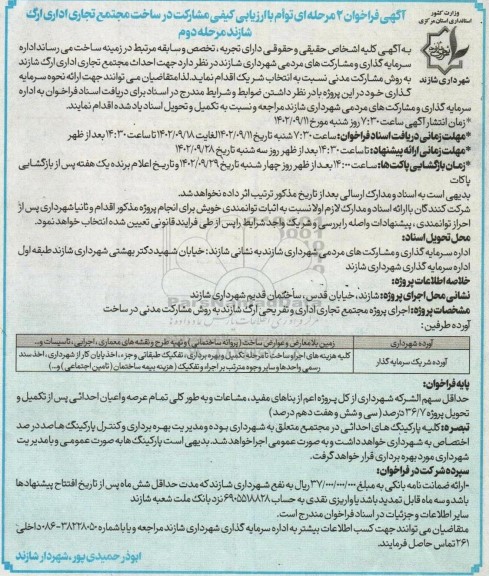 آگهی فراخوان ۲ مرحله ای توأم با ارزیابی کیفی مشارکت در ساخت مجتمع تجاری اداری ارگ
شازند مرحله دوم
وزارت کشور
استانداری استان مرکزی
شهرداری شازند
به آگهی کلیه اشخاص حقیقی و حقوقی دارای تجربه، تخصص و سابقه مرتبط در زمینه ساخت می رساند اداره
سرمایه گذاری و مشارکت های مردمی شهرداری شازند در نظر دارد جهت احداث مجتمع تجاری اداری ارگ شازند
به روش مشارکت مدنی نسبت به انتخاب شریک اقدام نمایند. لذا متقاضیان می توانند جهت ارائه نحوه سرمایه
گذاری خود در این پروژه با در نظر داشتن ضوابط و شرایط مندرج در اسناد برای دریافت اسناد فراخوان به اداره
سرمایه گذاری و مشارکت های مردمی شهرداری شازند مراجعه و نسبت به تکمیل و تحویل اسناد یاد شده اقدام نمایند.
*زمان انتشار آگهی ساعت ۷:۳۰ روز شنبه مورخ ۱۴۰۲/۰۹/۱۱
*مهلت زمانی دریافت اسناد فراخوان: ساعت ۷:۳۰ شنبه تاریخ ۱۴۰۲/۰۹/۱۱ لغایت ۱۴۰۲/۰۹/۱۸ تا ساعت ۱۴:۳۰ بعد از ظهر
*مهلت زمانی ارائه پیشنهاد: تا ساعت ۱۴:۳۰ بعد از ظهر روز سه شنبه تاریخ ۱۴۰۲/۰۹/۲۸
*زمان بازگشایی پاکت ها: ساعت ۱۴:۰۰ بعد از ظهر روز چهار شنبه تاریخ ۱۴۰۲/۰۹/۲۹ و تاریخ اعلام برنده یک هفته پس از بازگشایی
پاکات
بدیهی است به اسناد و مدارک ارسالی بعد از تاریخ مذکور ترتیب اثر داده نخواهد شد.
شرکت کنندگان با ارائه اسناد و مدارک لازم اولا نسبت به اثبات توانمندی خویش برای انجام پروژه مذکور اقدام و ثانیا شهرداری پس از
احراز توانمندی، پیشنهادات واصله را بررسی و شریک واجد شرایط را پس از طی فرایند قانونی تعیین شده انتخاب خواهد نمود.
محل تحویل اسناد:
اداره سرمایه گذاری و مشارکت های مردمی شهرداری شازند به نشانی شازند: خیابان شهید دکتر بهشتی شهرداری شازند طبقه اول
اداره سرمایه گذاری شهرداری شازند
خلاصه اطلاعات پروژه:
نشانی محل اجرای پروژه: شازند، خیابان قدس، ساختمان قدیم شهرداری شازند
مشخصات پروژه: اجرای پروژه مجتمع تجاری اداری و تفریحی ارگ شازند به روش مشارکت مدنی در ساخت
آورده طرفین:
آورده شهرداری
زمین بلامعارض و عوارض ساخت (پروانه ساختمانی) و تهیه طرح و نقشه های معماری، اجرایی، تاسیسات و...
آورده شریک سرمایه گذار
کلیه هزینه های اجرا و ساخت تا مرحله تکمیل و بهره برداری، تفکیک طبقاتی و جزء، اخذ پایان کار از شهرداری، اخذ سند
رسمی واحدها و سایر وجوه مترتب بر اجراء و تفکیک (هزینه بیمه ساختمان (تامین اجتماعی) و...)
پایه فراخوان:
حداقل سهم الشرکه شهرداری از کل پروژه اعم از بناهای مفید، مشاعات و به طور کلی تمام عرصه و اعیان احداثی پس از تکمیل و
تحویل پروژه ۳۶/۷ درصد (سی و شش و هفت دهم درصد)
تبصره: کلیه پارکینگ های احداثی در مجتمع متعلق به شهرداری بوده و مدیریت بهره برداری و کنترل پارکینگ ها صد در صد
اختصاص به شهرداری خواهد داشت و به صورت عمومی اجرا خواهد شد. بدیهی است پارکینگ ها به صورت عمومی و با مدیریت
شهرداری مورد بهره برداری قرار خواهد گرفت.
سپرده شرکت در فراخوان:
-ارائه ضمانت نامه بانکی به مبلغ ۳۷/۰۰۰/۰۰۰/۰۰۰ ریال به نفع شهرداری شازند که مدت حداقل شش ماه پس از تاریخ افتتاح پیشنهادها
باشد و سه ماه قابل تمدید باشد یا واریزی نقدی به حساب ۶۹۰۵۵۱۸۸۲۸ نزد بانک ملت شعبه شازند
سایر اطلاعات و جزئیات در اسناد فراخوان مندرج است.
متقاضیان می توانند جهت کسب اطلاعات بیشتر به اداره سرمایه گذاری شهرداری شازند مراجعه و یا با شماره ۳۸۲۲۸۰۵۰-۰۸۶ داخلی:
۲۶۱ تماس حاصل فرمایند.
ابوذر حمیدی پور، شهردار شازند